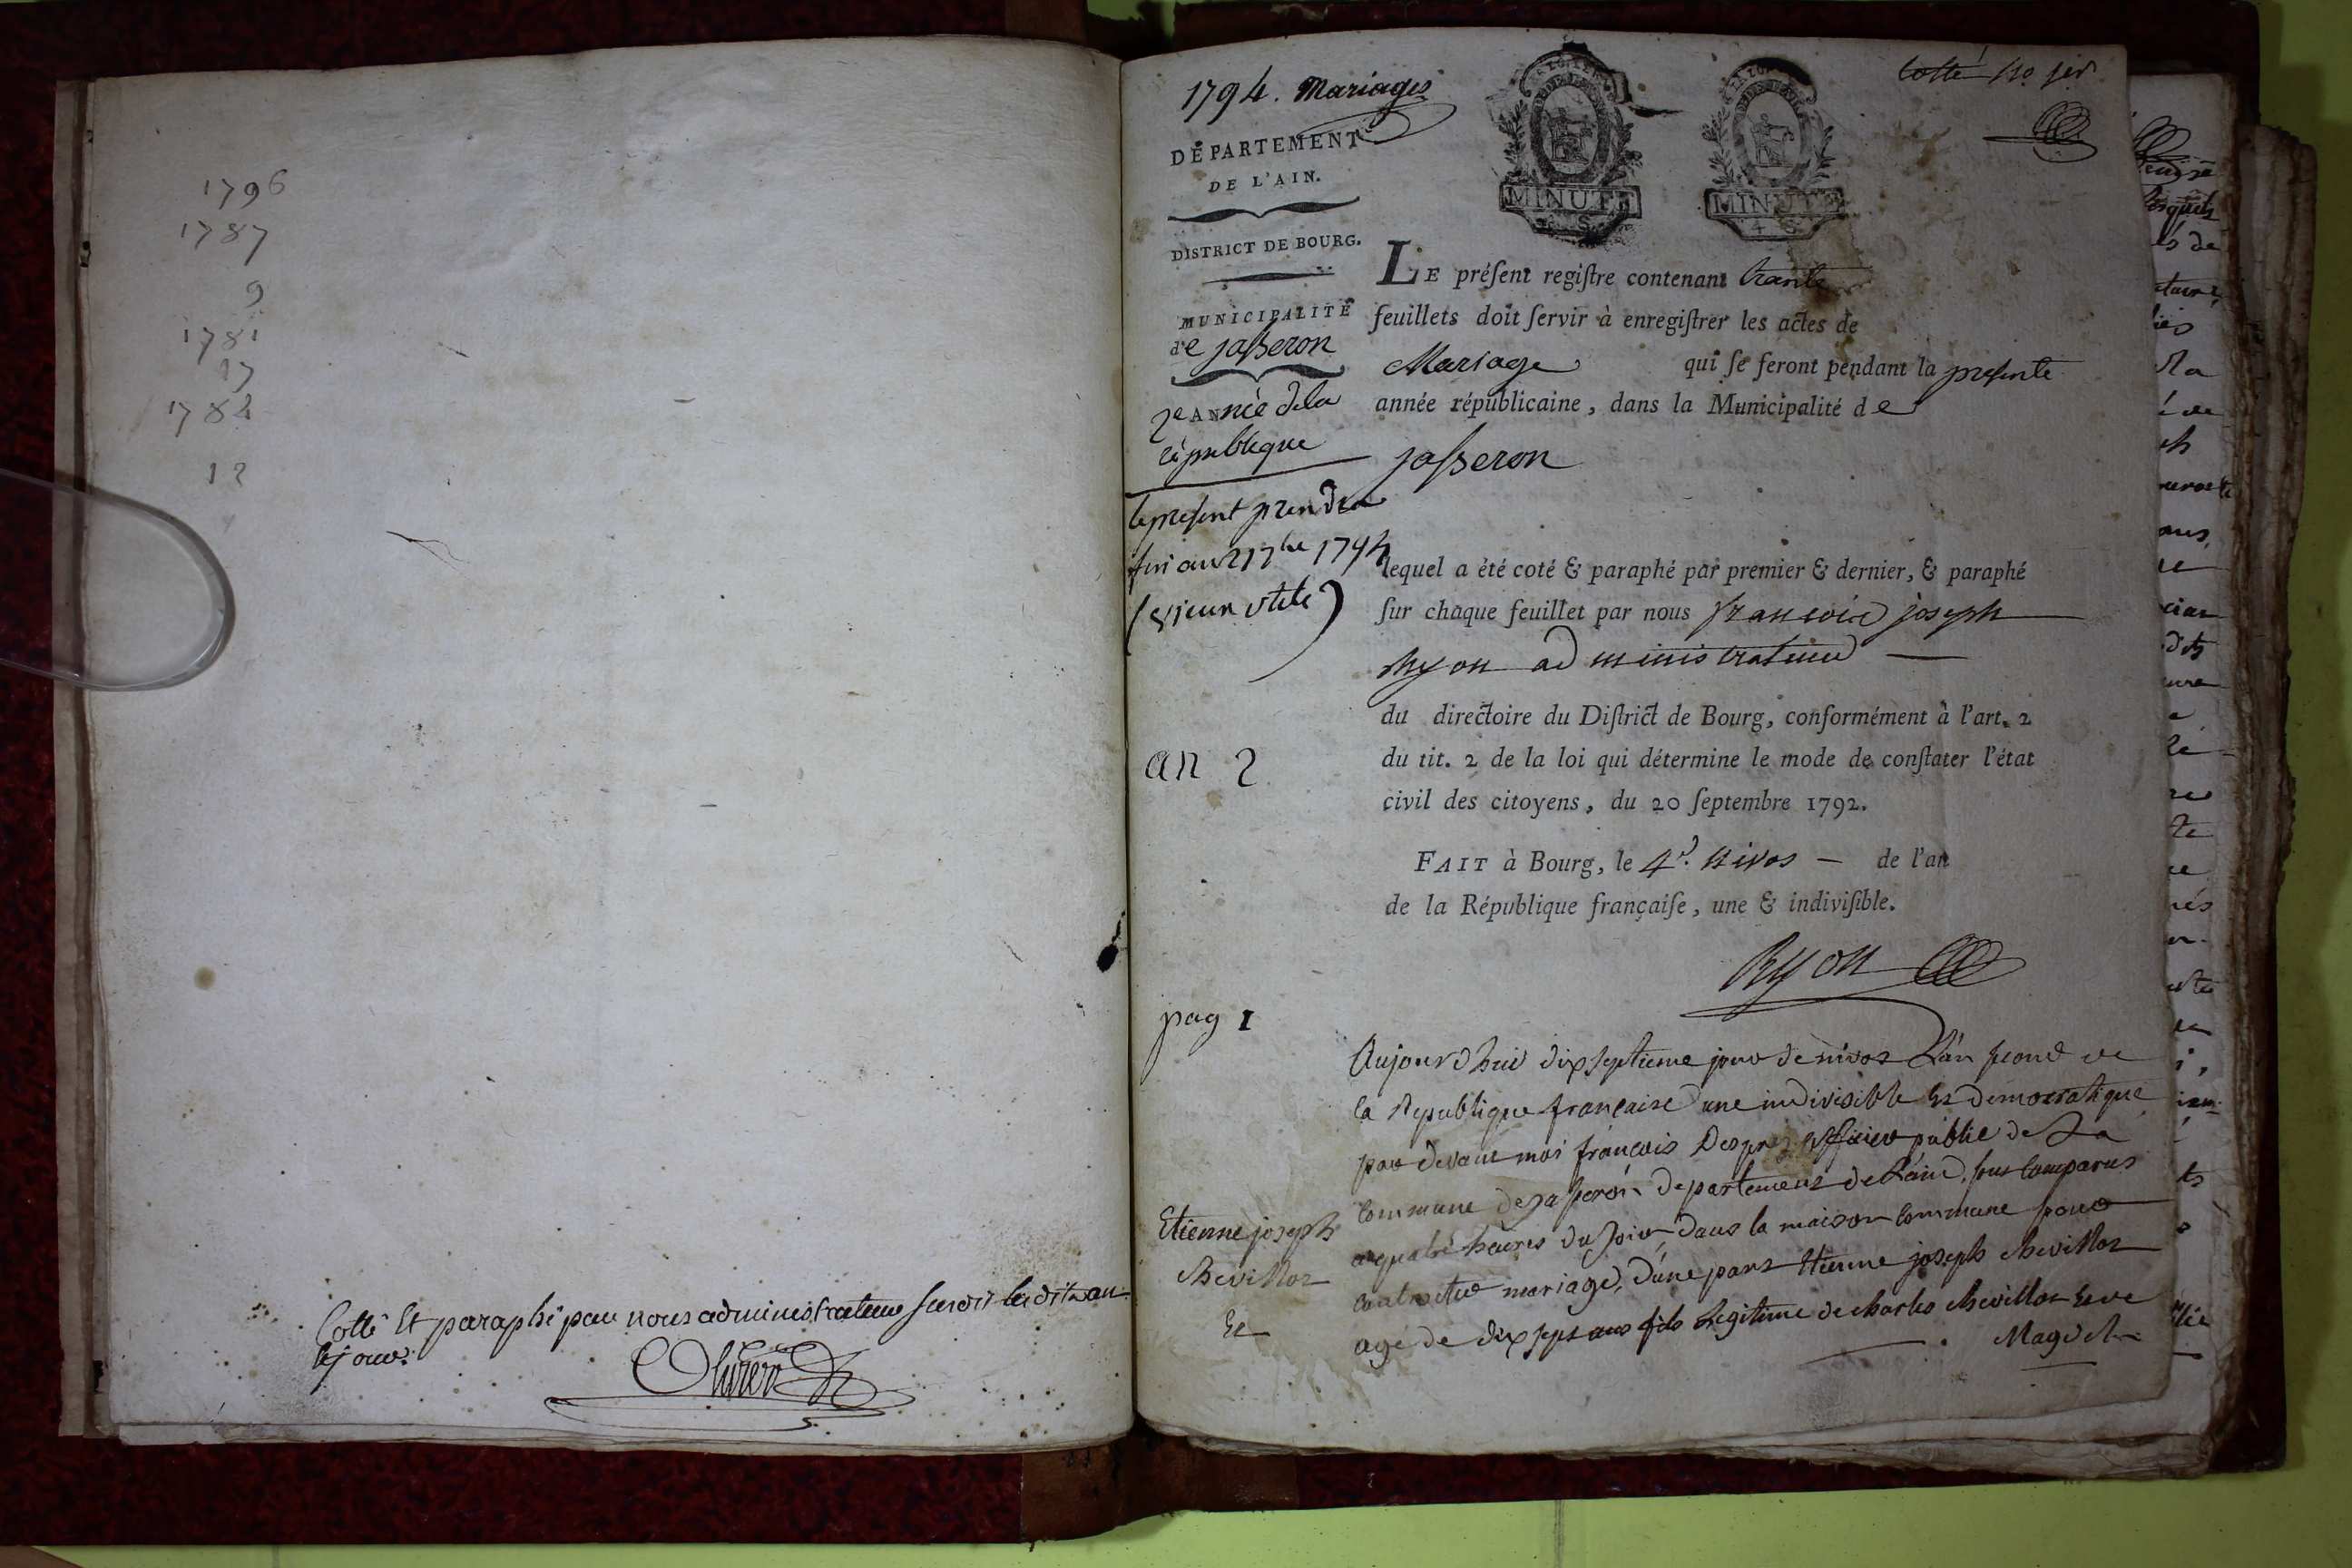 1796
1787
9
1781
17
1782
12
Cotté Et paraphé par nous administrateur susdit lesdits an
Et jour.
Olivier
1794. Mariages
Cotté No. 1er
DÉPARTEMENT
DE L'AIN.
DISTRICT DE BOURG.
MUNICIPALITÉ
de jasseron
2e ANnée dela
république
le present prendra
fin au 21 7bre 1794
(vieux stile)
an 2
pag 1
MINUTE
4 S.
MINUTE
4 S.
LE préſent regiſtre contenant trante
feuillets doit ſervir à enregiſtrer les actes de
Mariage qui ſe feront pendant la presente
année républicaine, dans la Municipalité de
jasseron
lequel a été coté & paraphé par premier & dernier, & paraphé
ſur chaque feuillet par nous francois joseph
Ryon administrateur —
du directoire du Diſtrict de Bourg, conformément à l'art. 2
du tit. 2 de la loi qui détermine le mode de conſtater l'état
civil des citoyens, du 20 ſeptembre 1792.
FAIT à Bourg, le 4e. nivos — de l'an
de la République françaiſe, une & indiviſible.
Ryon
Aujourdhui dix septieme jour de nivos L'an second de
la Republique francaise une indivisible Et democratique
par devant moi francois Despres officier public de La
commune de jasseron departement de L'ain, sont comparus
a quatre heures du soir, dans la maison commune pour
contracter mariage, d'une part Etienne joseph chevillot
agé de dix sept ans fils Legitime de charles chevillot Et de
Magdel
Etienne joseph
chevillot
Et